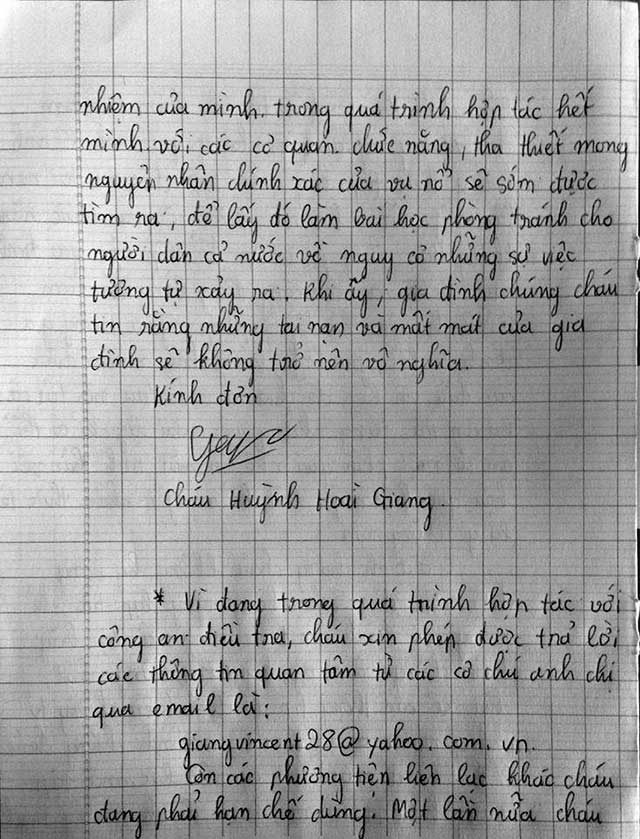 nhiệm của mình. trong quá trình hợp tác hết
mình với các cơ quan chức năng, tha thiết mong
nguyên nhân chính xác của vụ nổ sẽ sớm được
tìm ra, để lấy đó làm bài học phòng tránh cho
người dân cả nước về nguy cơ những sự việc
tương tự xảy ra. Khi ấy, gia đình chúng cháu
tin rằng những tai nạn và mất mát của gia
đình sẽ không trở nên vô nghĩa.
Kính đơn
Cháu Huỳnh Hoài Giang.
* Vì đang trong quá trình hợp tác với
công an điều tra, cháu xin phép được trả lời
các thông tin quan tâm từ các cô chú anh chị
qua email là:
giangvincent28@yahoo.com.vn.
Còn các phương tiện liên lạc khác cháu
đang phải hạn chế dùng. Một lần nữa cháu